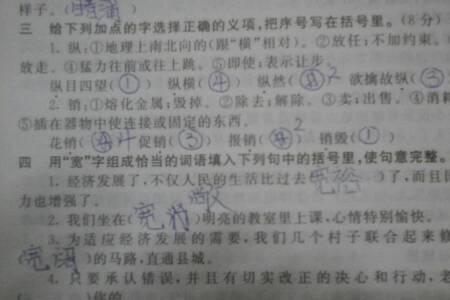 样子。(
三 给下列加点的字选择正确的义项,把序号写在括号里。(8分)
1. 纵:①地理上南北向的(跟“横”相对)。②放任;不加约束。
放走。④猛力往前或往上跳。⑤即使;表示让步。
纵目四望(①) 纵横(④) 纵然( 2 欲擒故纵(③
2. 销:①熔化金属;毁掉。②除去;解除。③卖;出售。④消耗
⑤插在器物中使连接或固定的东西。
花销( 4 促销(③) 报销( 2 销毁(①)
四 用“宽”字组成恰当的词语填入下列句中的括号里,使句意完整。
1. 经济发展了,不仅人民的生活比过去(宽裕)了,而且国
力也增强了。
2. 我们坐在(宽敞)明亮的教室里上课,心情特别愉快。
3. 为适应经济发展的需要,我们几个村子联合起来修
宽阔)的马路,直通县城。
4. 只要承认错误,并且有切实改正的决心和行动,老
)你的